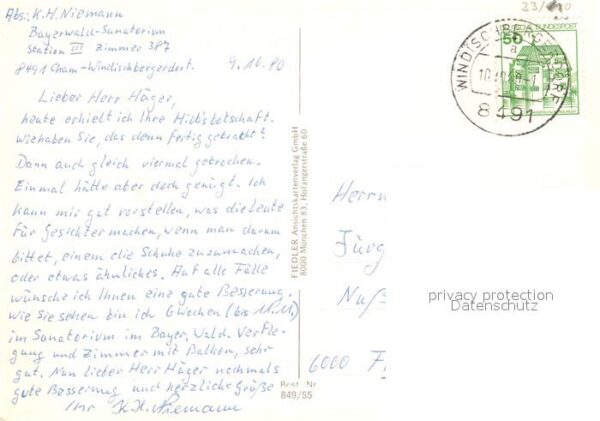 Abs: K.H. Niemann
Bayerwald-Sanatorium
Station III Zimmer 387
8491 Cham-Windischbergerdorf
9.10.80
Lieber Herr Häger,
heute erhielt ich Ihre Hiobsbotschaft.
wie haben Sie, das denn fertig gebracht?
Dann auch gleich viermal gebrochen.
Einmal hätte aber doch genügt. Ich
kann mir gut vorstellen, was die Leute
für Gesichter machen, wenn man darum
bittet, einem die Schuhe zuzumachen,
oder etwas ähnliches. Auf alle Fälle
wünsche ich Ihnen eine gute Besserung.
wie Sie sehen bin ich 6 Wochen (bis 11.11.)
im Sanatorium im Bayer. Wald. Verfle-
gung und Zimmer mit Balkon, sehr
gut. Nun lieber Herr Häger nochmals
gute Besserung und herzliche Grüße
Ihr K.H. Niemann
FIEDLER Ansichtskartenverlag GmbH
8000 München 83, Hofangerstraße 60
Best. Nr
849/55
33/
50
WINDISCHBERGERDORF
a
8491
Herrn
Jürg
Nuß
6000 F
privacy protection
Datenschutz